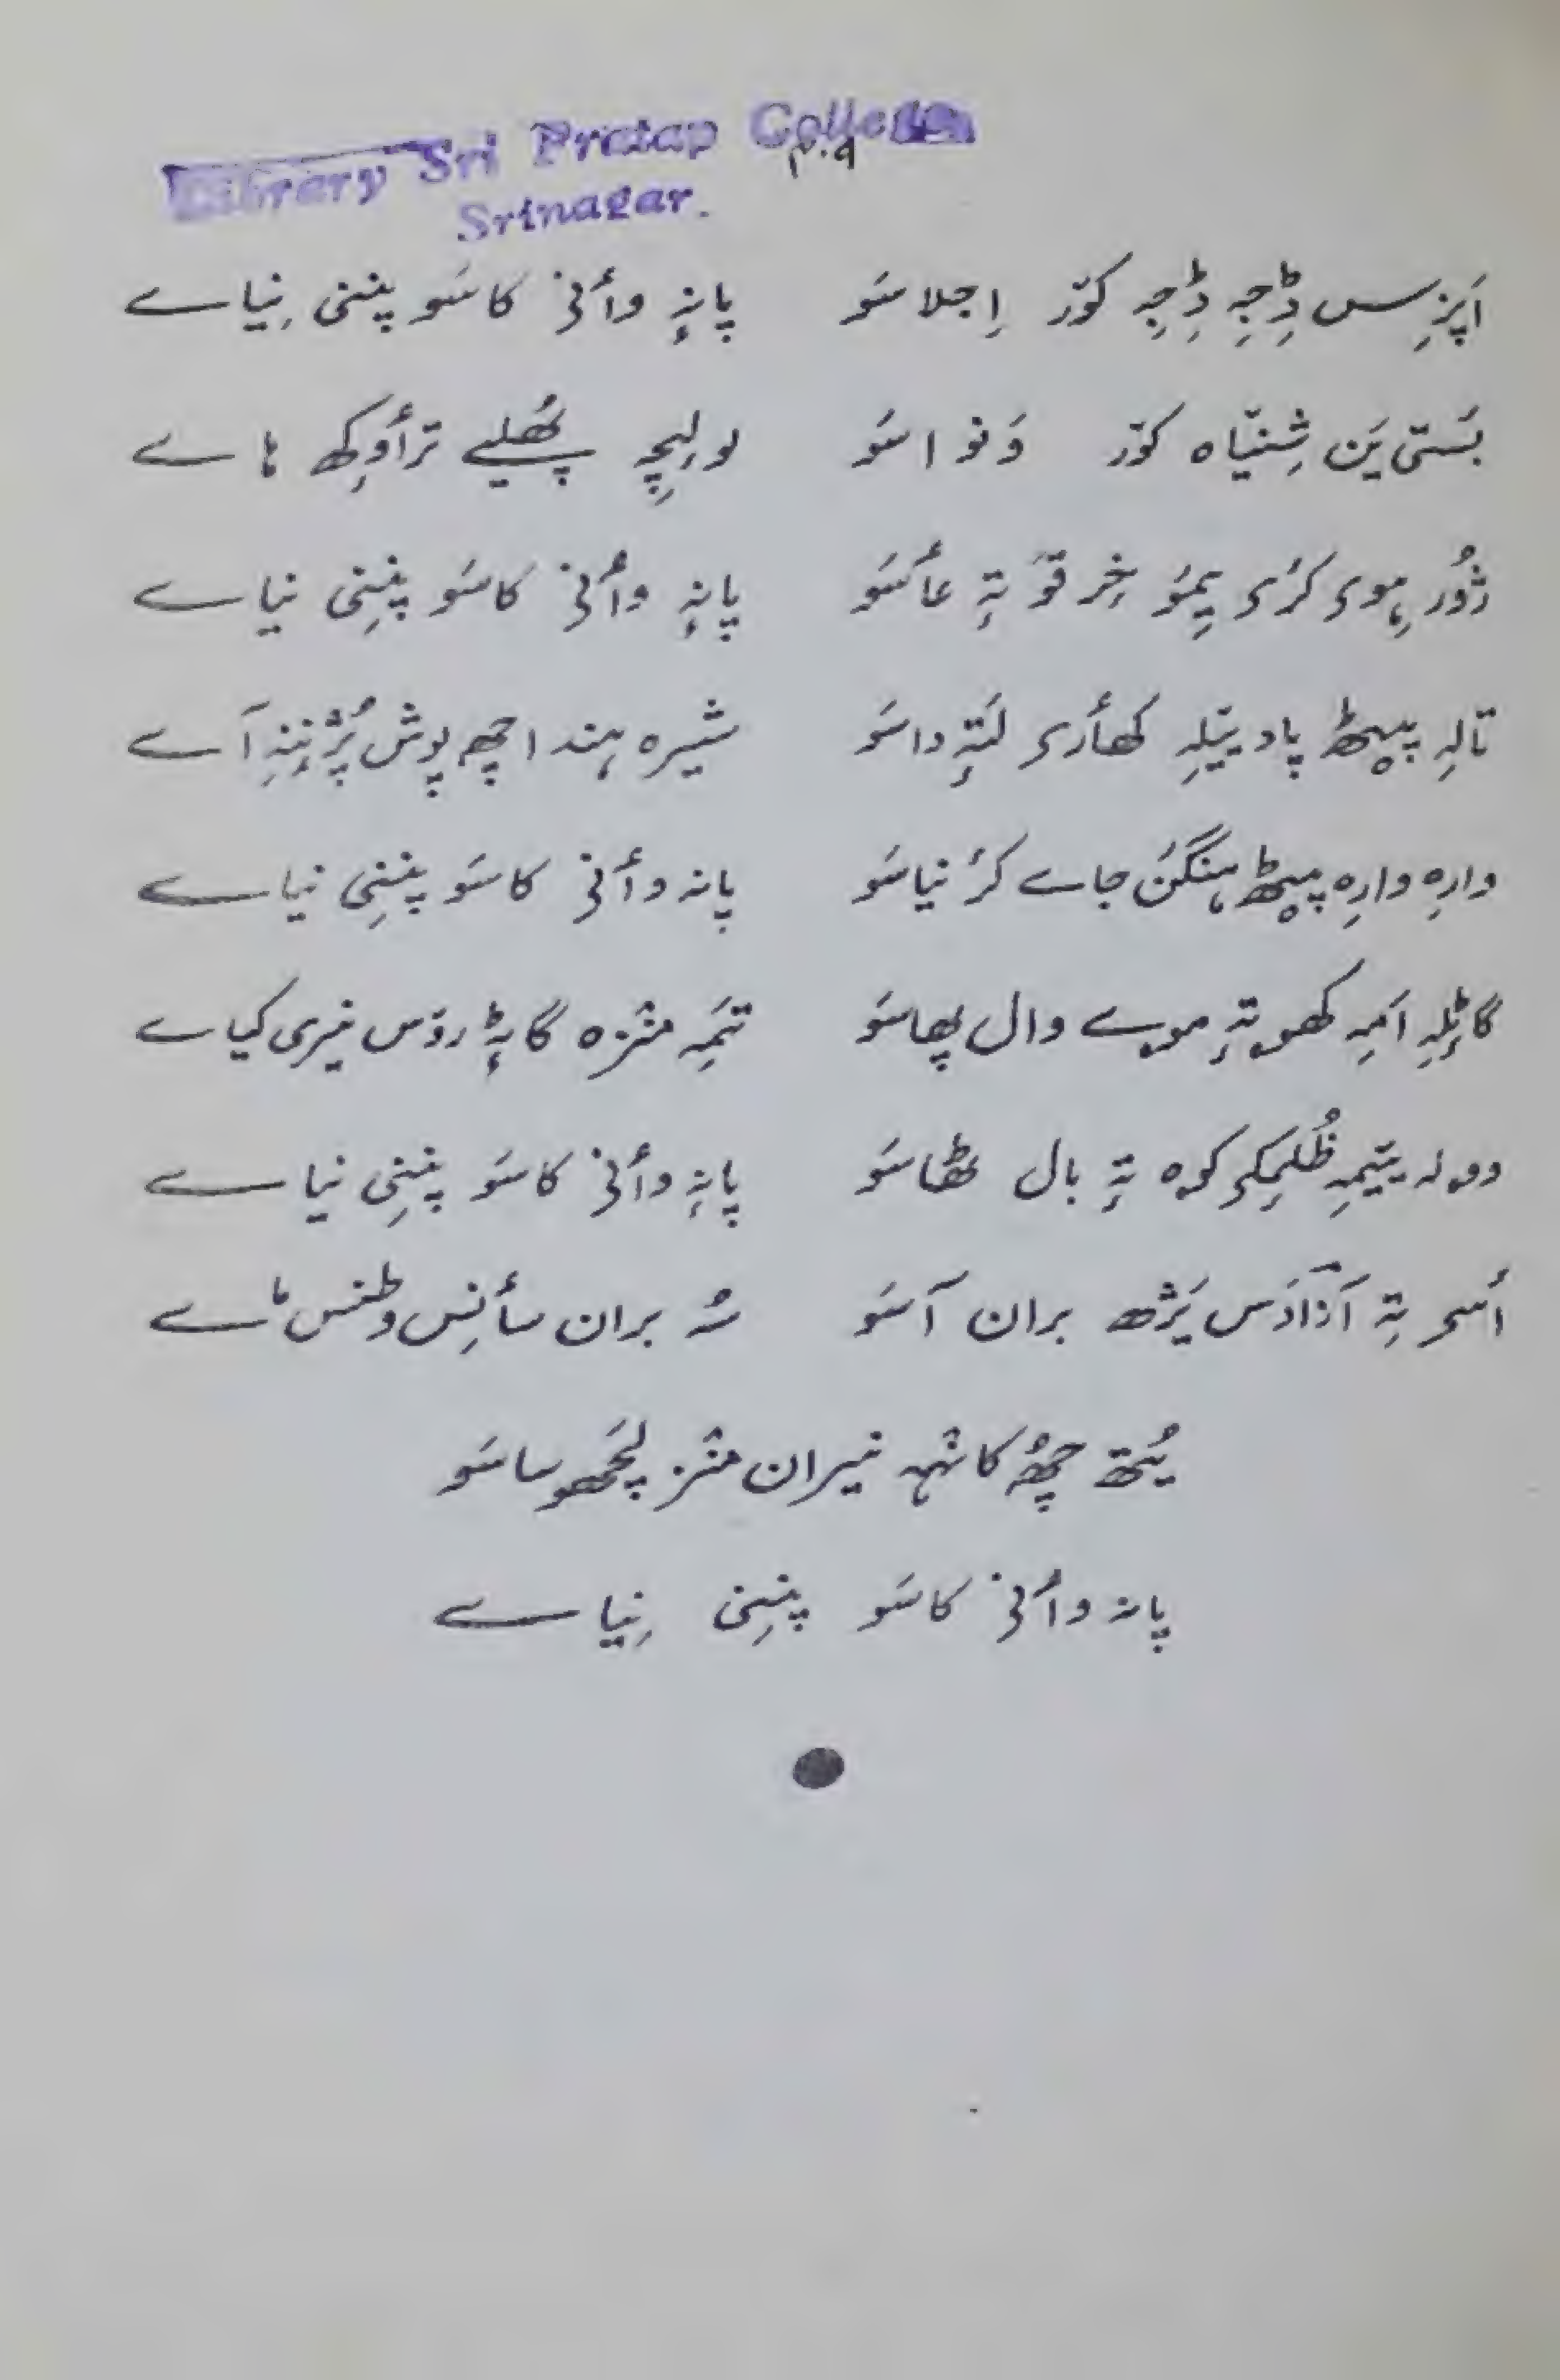 Library Sri Pratap College
۲۰۹
Srinagar.
اَپزِس ڈِجہِ ڈِجہِ کوٚر اِجلاسَو پانہٕ وأنۍ کاسَو پننی نِیاے
بَستی یَن شِنیٛاہ کوٚر وَنو اسَو لولِچہِ پھُلیے ترأوِکھ ہاے
ژوٗر ہِوۍ کرٛۍ یِمَو خِرقوَ تہٕ عأسَو پانہٕ وأنۍ کاسَو پننِی نیاے
تالہِ پیٹھ پاد یٔلہِ کھأرۍ لَتہٕ داسَو شیرہ ہند اچھ پوش پٔژنہِ آے
وارِہ وارِہ پیٹھ ہنگنَن جاے کرٔ نیاسَو پانہ وأنۍ کاسَو پننِی نیاے
گاٹلہِ اَمہِ کھوتہٕ مویے وال پھاسَو تَمہِ منٛزہ گاٹہٕ روٚس نیری کیاے
دولہ یٔتمہِ ظُلمِکۍ کوہ تہٕ بال ٹھاسَو پانہٕ وأنۍ کاسَو پننِی نیاے
أسۍ تہٕ آزادَس یَژھ بران آسَو سُہ بران سأنِس وطنس ماے
یُتھ چھُ کانٛہہ نیران منٛز لَچھوساسَو
پانہ وأنۍ کاسَو پننِی نِیاے